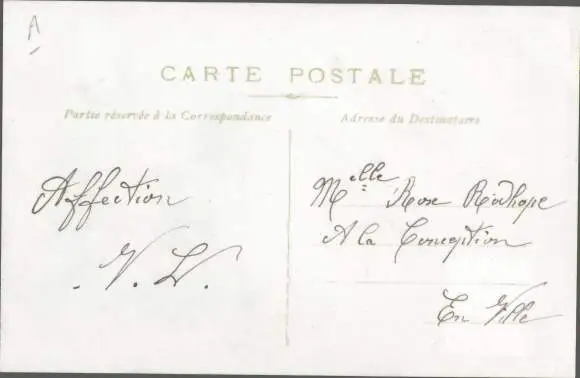 A
CARTE POSTALE
Partie réservée à la Correspondance
Adresse du Destinataire
Affection
V. L.
Melle Rose
A la Conception
En Ville